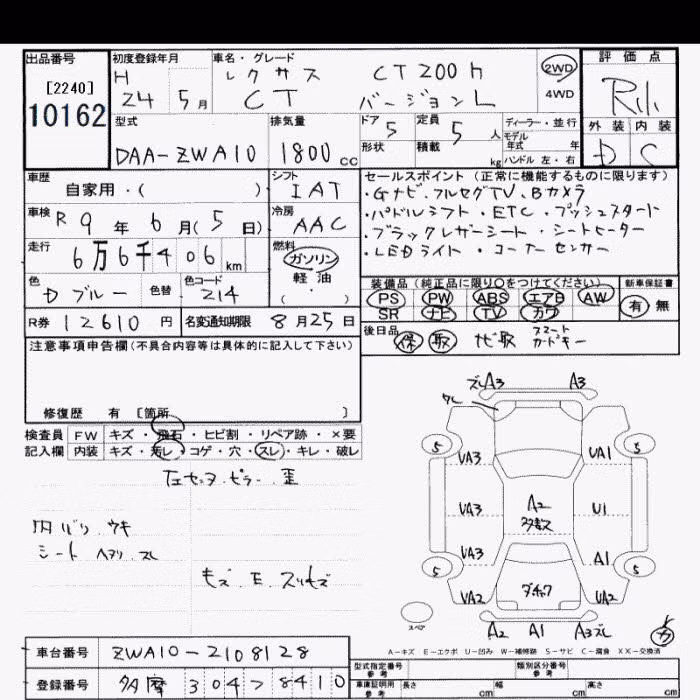 出品番号
[2240]
10162
初度登録年月
H
24 5月
車名・グレード
レクサス CT200h
CT バージョンL
2WD
4WD
評価点
外装 内装
D C
型式
DAA-ZWA10
排気量
1800cc
ドア 5
形状
定員 5人
積載 kg
ディーラー・並行
モデル年式 年
ハンドル 左・右
車歴
自家用・( )
シフト
IAT
車検 R9年6月(5日)
冷房
AAC
走行
6万6千406km
燃料
ガソリン
軽油
( ・ )
色
Dブルー
色替
色コード
214
R券 12610円
名変通知期限 8月25日
セールスポイント(正常に機能するものに限ります)
・Gナビ、フルセグTV、Bカメラ
・パドルシフト・ETC・プッシュスタート
・ブラックレザーシート・シートヒーター
・LEDライト・コーナーセンサー
装備品(純正品に限り○をつけてください)
PS PW ABS エアB AW
SR ナビ TV カワ
新車保証書
有 無
後日品
保 取 ナビ取 スマートカードキー
注意事項申告欄(不具合内容等は具体的に記入して下さい)
修復歴 有 [箇所 ]
検査員 FW キズ・飛石・ヒビ割・リペア跡・×要
記入欄 内装 キズ・汚レ・コゲ・穴・スレ・キレ・破レ
左センターピラー歪
内バリ ウキ
シート ヘタリ スレ
キズ・E・スリキズ
ズレA3 A3
クレ
5 5
UA3 UA1
UA3 A2 U1
多数ス
UA3 A1
5 5
UA2 ダチック UA2
A2 A1 A3ズレ
スペア
A-キズ E-エクボ U-凹み W-補修跡 S-サビ C-腐食 XX-交換済
車台番号 ZWA10-2108128
登録番号 多摩 304 フ 8410
型式指定番号
参考
類別区分番号
参考
車庫証明用
参考
長さ cm 幅 cm 高さ cm